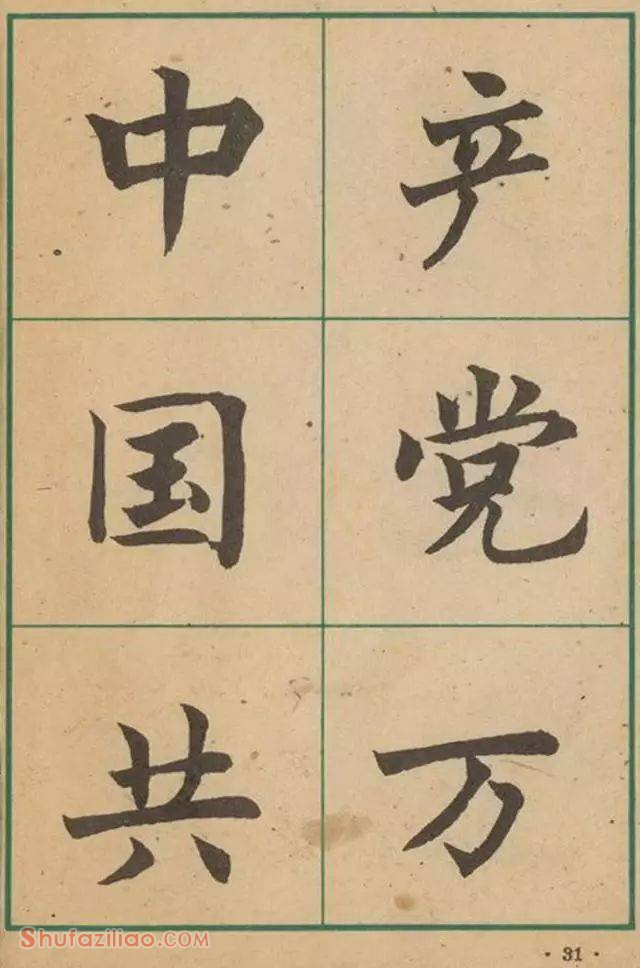 中国共
产党万
Shufaziliao.com
· 31 ·